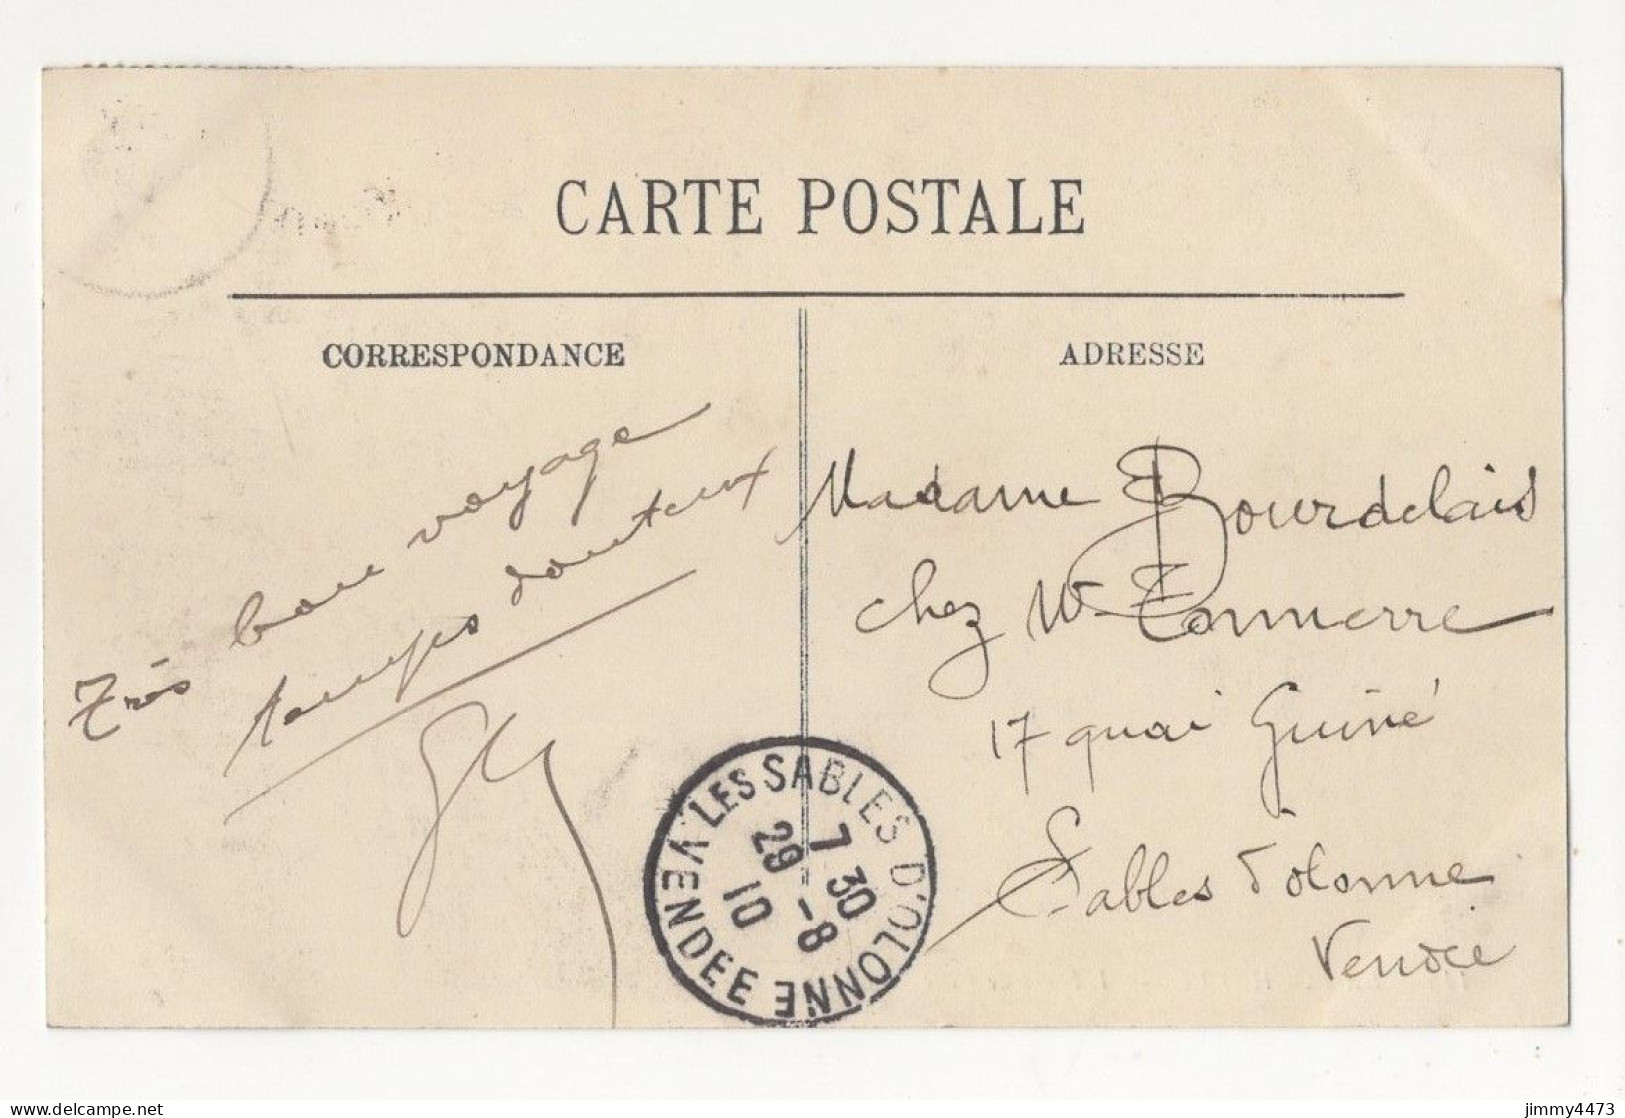 CARTE POSTALE
CORRESPONDANCE
ADRESSE
Très bon voyage
temps douteux
Madame Bourdelais
chez Mr Tonnerre
17 quai Guiné
Sables d'olonne
Vendée
LES SABLES D'OLONNE
VENDEE
7 30
29 -8
10
jimmy4473